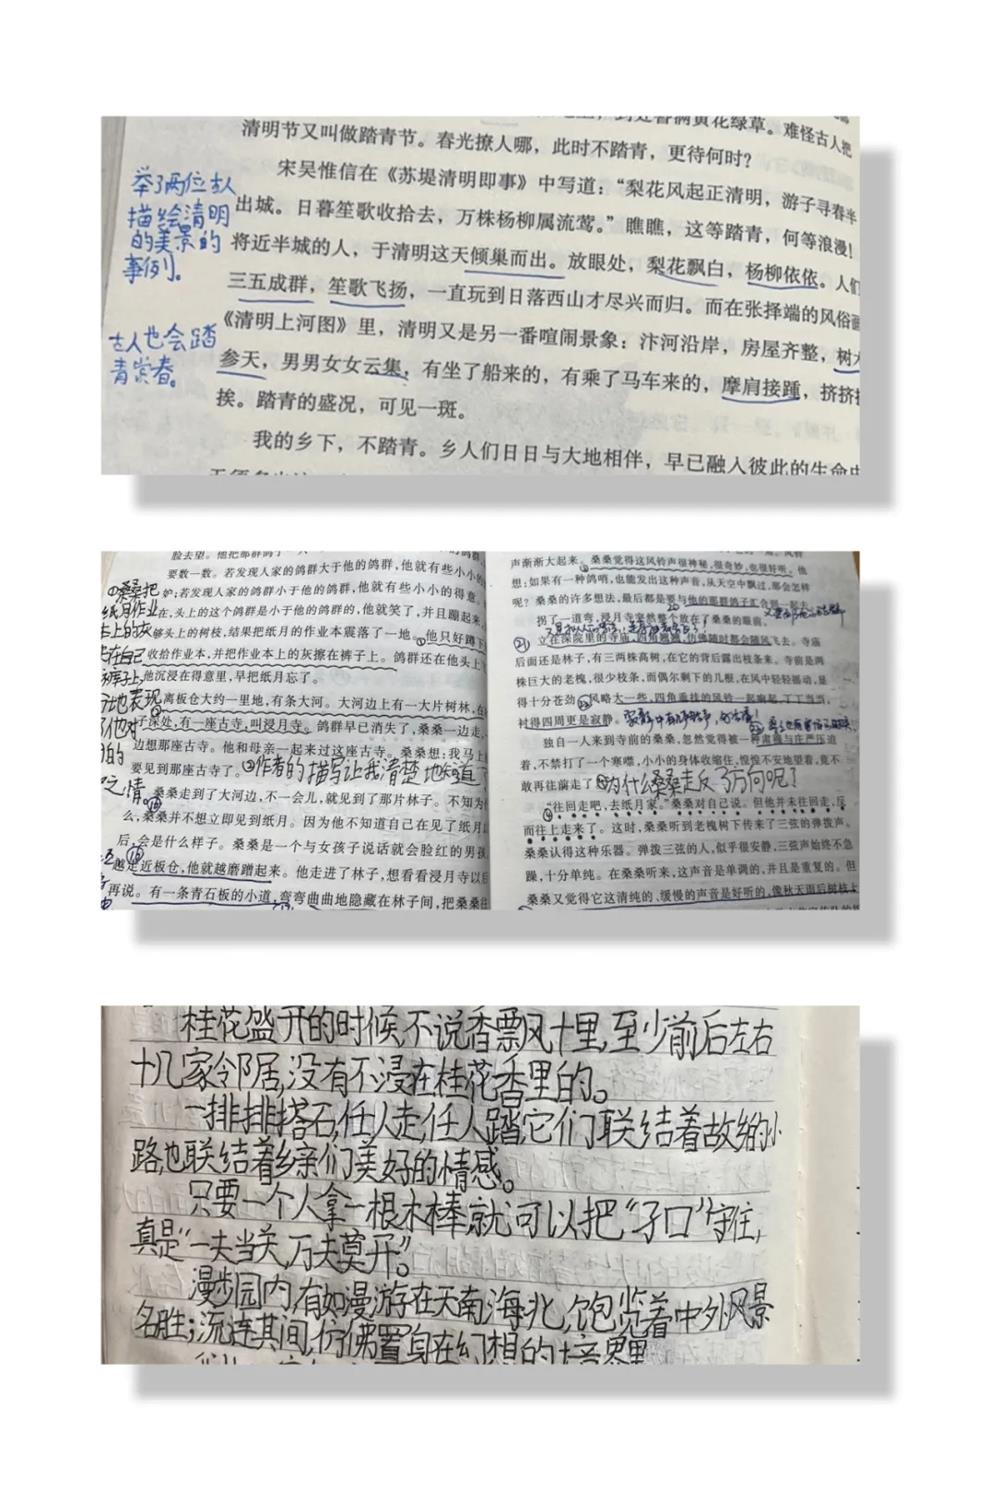 清明节又叫做踏青节。春光撩人哪，此时不踏青，更待何时？
宋吴惟信在《苏堤清明即事》中写道：“梨花风起正清明，游子寻春半
出城。日暮笙歌收拾去，万株杨柳属流莺。”瞧瞧，这等踏青，何等浪漫！
将近半城的人，于清明这天倾巢而出。放眼处，梨花飘白，杨柳依依。人们
三五成群，笙歌飞扬，一直玩到日落西山才尽兴而归。而在张择端的风俗画
《清明上河图》里，清明又是另一番喧闹景象：汴河沿岸，房屋齐整，树木
参天，男男女女云集，有坐了船来的，有乘了马车来的，摩肩接踵，挤挤挨
挨。踏青的盛况，可见一斑。
我的乡下，不踏青。乡人们日日与大地相伴，早已融入彼此的生命中
举了两位古人
描绘清明
的美景的
事例。
古人也会踏
青赏春。
要数一数。若发现人家的鸽群大于他的鸽群，他就有些小小的
妒；若发现人家的鸽群小于他的鸽群，他就有些小小的得意。
在，头上的这个鸽群是小于他的鸽群的，他就笑了，并且蹦起来，
够头上的树枝，结果把纸月的作业本震落了一地。①他只好蹲下
收拾作业本，并把作业本上的灰擦在裤子上。鸽群还在他头上
他沉浸在得意里，早把纸月忘了。
离板仓大约一里地，有条大河。大河边上有一大片树林，在
子深处，有一座古寺，叫浸月寺。鸽群早已消失了，桑桑一边走，
边想那座古寺。他和母亲一起来过这座古寺。桑桑想：我马上
要见到那座古寺了。②作者的描写让我清楚地知道了
桑桑走到了大河边，不一会儿，就见到了那片林子。不知为什
么，桑桑并不想立即见到纸月。因为他不知道自己在见了纸月以
后，会是什么样子。桑桑是一个与女孩子说话就会脸红的男孩
越走近板仓，他就越磨蹭起来。他走进了林子，想看看浸月寺以后
再说。有一条青石板的小道，弯弯曲曲地隐藏在林子间，把桑桑往
①桑桑把
纸月作业
声渐渐大起来。桑桑觉得这风铃声很神秘，很奇妙，也很好听。他
想：如果有一种鸽哨，也能发出这种声音，从天空中飘过，那会怎样
呢？桑桑的许多想法，最后都是要与他的那群鸽子汇合到一起去
拐了一道弯，浸月寺突然整个放在了桑桑的眼前。
立在深院里的寺庙，四角翘翘，仿佛随时都会随风飞去。寺庙
后面还是林子，有三两株高树，在它的背后露出枝条来。寺前是两
株巨大的老槐，很少枝条，而偶尔剩下的几根，在风中轻轻摇动，显
得十分苍劲。风略大一些，四角垂挂的风铃一起响起，丁丁当当，
衬得四周更是寂静。
独自一人来到寺前的桑桑，忽然觉得被一种肃穆与庄严压迫
着，不禁打了一个寒噤，小小的身体收缩住，惶惶不安地望着，竟不
敢再往前走了。为什么桑桑走反了方向呢？
“往回走吧，去纸月家。”桑桑对自己说。但他并未往回走，反
而往上走来了。这时，桑桑听到老槐树下传来了三弦的弹拨声。
桑桑认得这种乐器。弹拨三弦的人，似乎很安静，三弦声始终不急
躁，十分单纯。在桑桑听来，这声音是单调的，并且是重复的。但
桑桑又觉得它这清纯的、缓慢的声音是好听的，像秋天雨后树枝上
桂花盛开的时候，不说香飘十里，至少前后左右
十几家邻居，没有不浸在桂花香里的。
一排排搭石，任人走，任人踏，它们联结着故乡的小
路，也联结着乡亲们美好的情感。
只要一个人拿一根木棒，就可以把“孑口”守住，
真是“一夫当关，万夫莫开”。
漫步园内，有如漫游在天南海北，饱览着中外风景
名胜；流连其间，仿佛置身在幻想的境界里